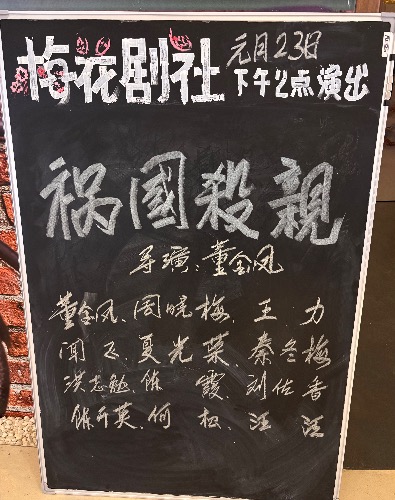 梅花剧社 元月23日
下午2点演出
祸國殺親
导演:董金凤
董金凤、周晓梅 王 力
闻飞、夏光荣 秦冬梅
洪志勉、陈 霞、刘佐香
陈开英、何 松、汪 江